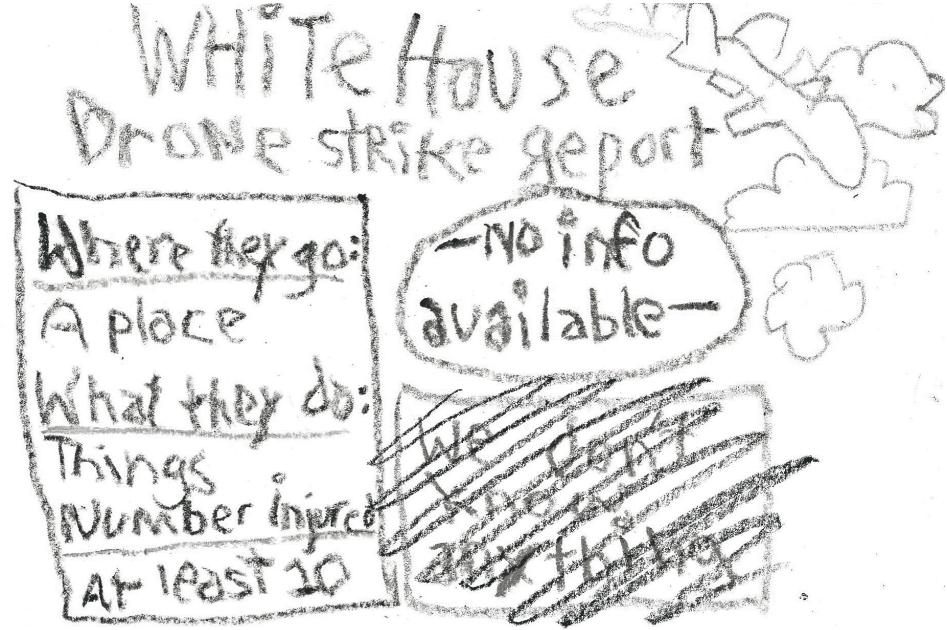 WHiTe House
DroNe striKe report
Where they go:
A place
What they do:
Things
Number injured
At least 10
-No info
available-
We don't
know
anything